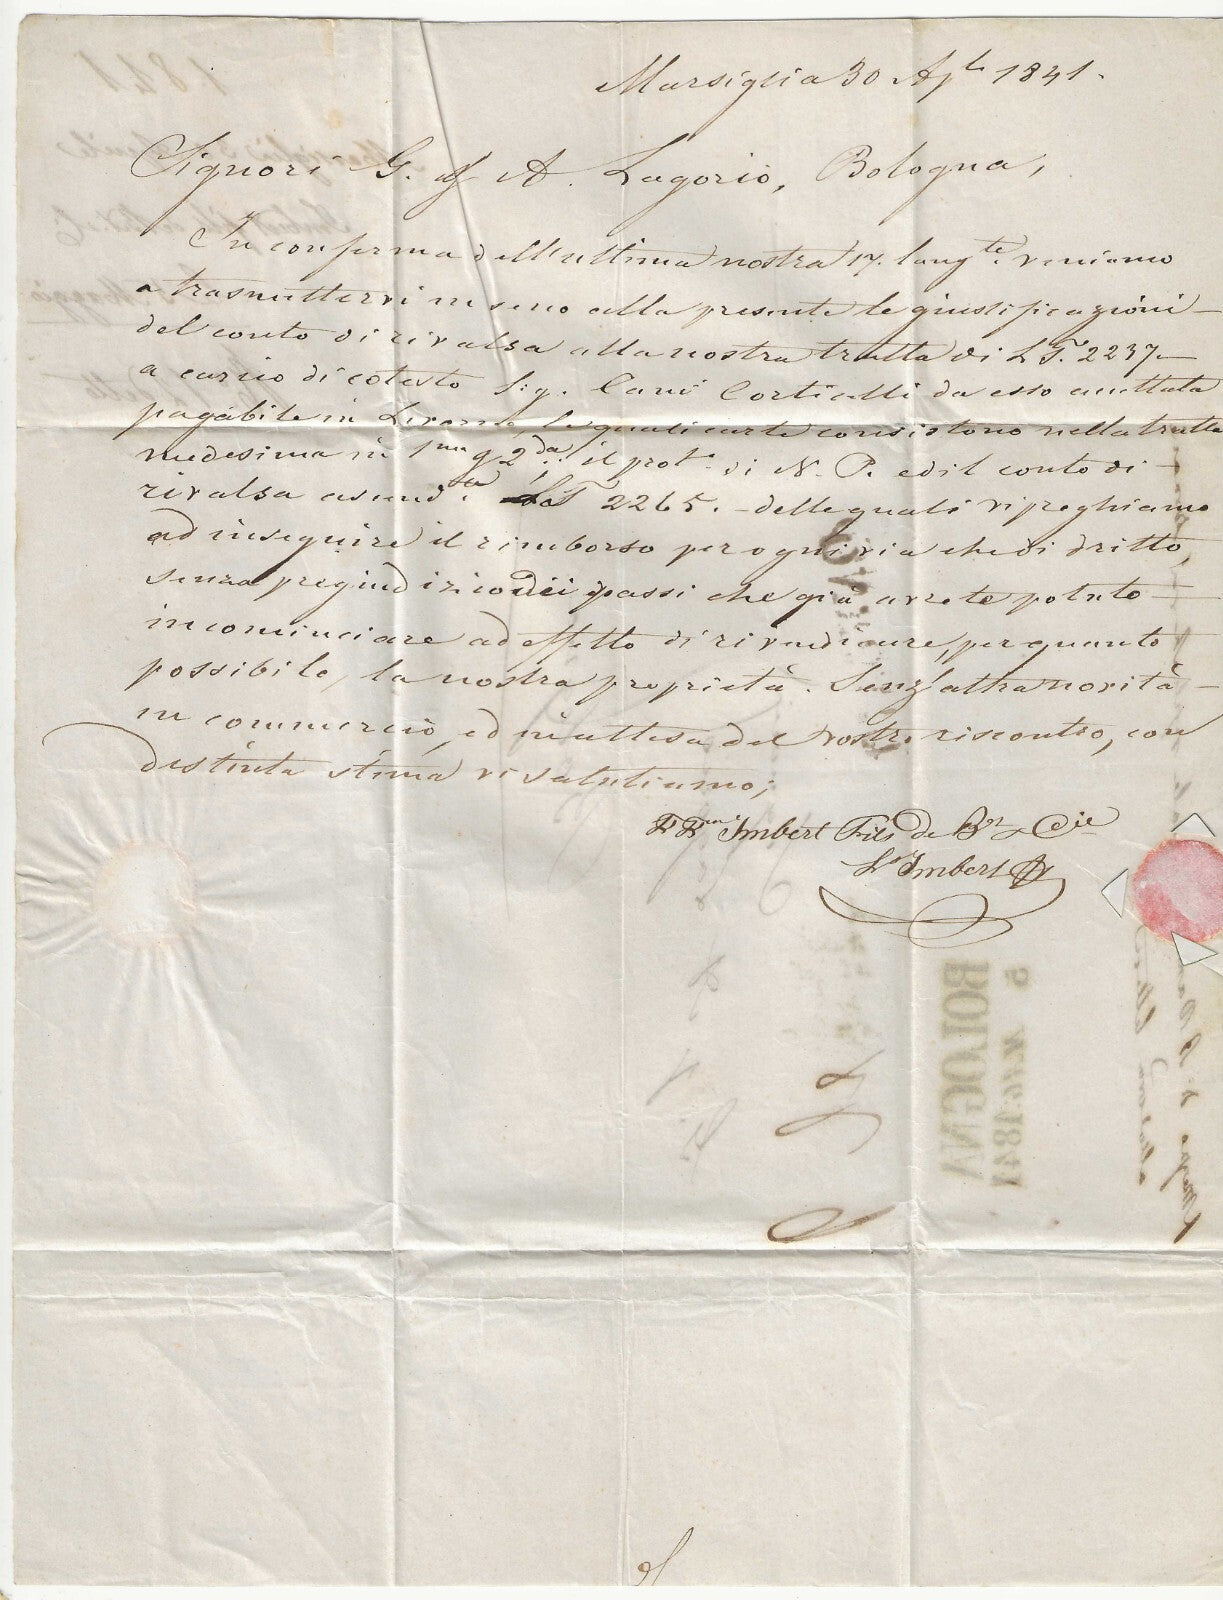 Marsiglia 30 Aple 1841.
Signori G. & A. Lagorio, Bologna,
In conferma dell'ultima nostra 17. langte. veniamo
a trasmettervi in seno alla presente le giustificazioni
del conto di rivalsa alla nostra tratta di LT. 2237.
a carico di cotesto Sig. Corticelli da esso accettata
pagabile in Livorno, le quali carte consistono nella tratta
medesima in 1ma & 2da; il prot. di N. P. ed il conto di
rivalsa ascendte. LT 2265. delle quali vi preghiamo
ad inseguire il rimborso per ogni via che di dritto,
senza pregiudizio dei passi che già avrete potuto
incominciare ad effetto di rivendicare, per quanto
possibile, la nostra proprietà. Senz'altra novità
in commercio, ed in attesa del vostro riscontro, con
distinta stima vi salutiamo;
Imbert Fils de Bn & Cie
Ls Imbert
5 MAG. 1841
BOLOGNA
1841